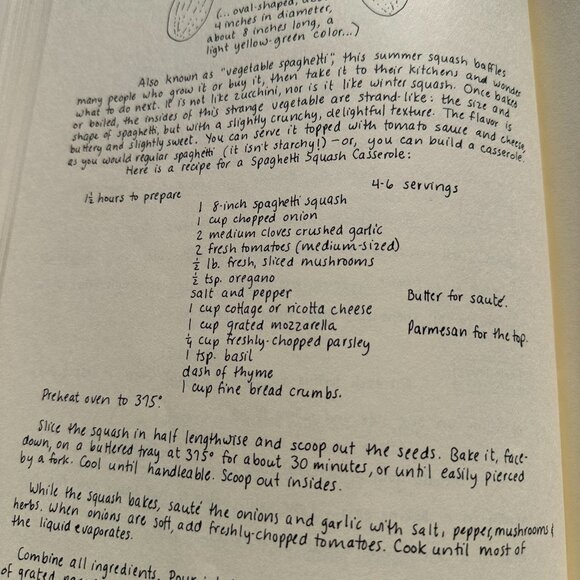 (... oval-shaped,
4 inches in diameter,
about 8 inches long, a
light yellow-green color...)
Also known as "vegetable spaghetti", this summer squash baffles
many people who grow it or buy it, then take it to their kitchens and wonder
what to do next. It is not like zucchini, nor is it like winter squash. Once baked
or boiled, the insides of this strange vegetable are strand-like: the size and
shape of spaghetti, but with a slightly crunchy, delightful texture. The flavor is
buttery and slightly sweet. You can serve it topped with tomato sauce and cheese,
as you would regular spaghetti (it isn't starchy!) - or, you can build a casserole.
Here is a recipe for a Spaghetti Squash Casserole:
4-6 servings
1½ hours to prepare
1 8-inch spaghetti squash
1 cup chopped onion
2 medium cloves crushed garlic
2 fresh tomatoes (medium-sized)
½ lb. fresh, sliced mushrooms
½ tsp. oregano
salt and pepper
Butter for sauté.
1 cup cottage or ricotta cheese
1 cup grated mozzarella
Parmesan for the top.
¼ cup freshly-chopped parsley
1 tsp. basil
dash of thyme
1 cup fine bread crumbs.
Preheat oven to 375°.
Slice the squash in half lengthwise and scoop out the seeds. Bake it, face-
down, on a buttered tray at 375° for about 30 minutes, or until easily pierced
by a fork. Cool until handleable. Scoop out insides.
While the squash bakes, sauté the onions and garlic with salt, pepper, mushrooms &
herbs. When onions are soft, add freshly-chopped tomatoes. Cook until most of
the liquid evaporates.
Combine all ingredients.
of grated